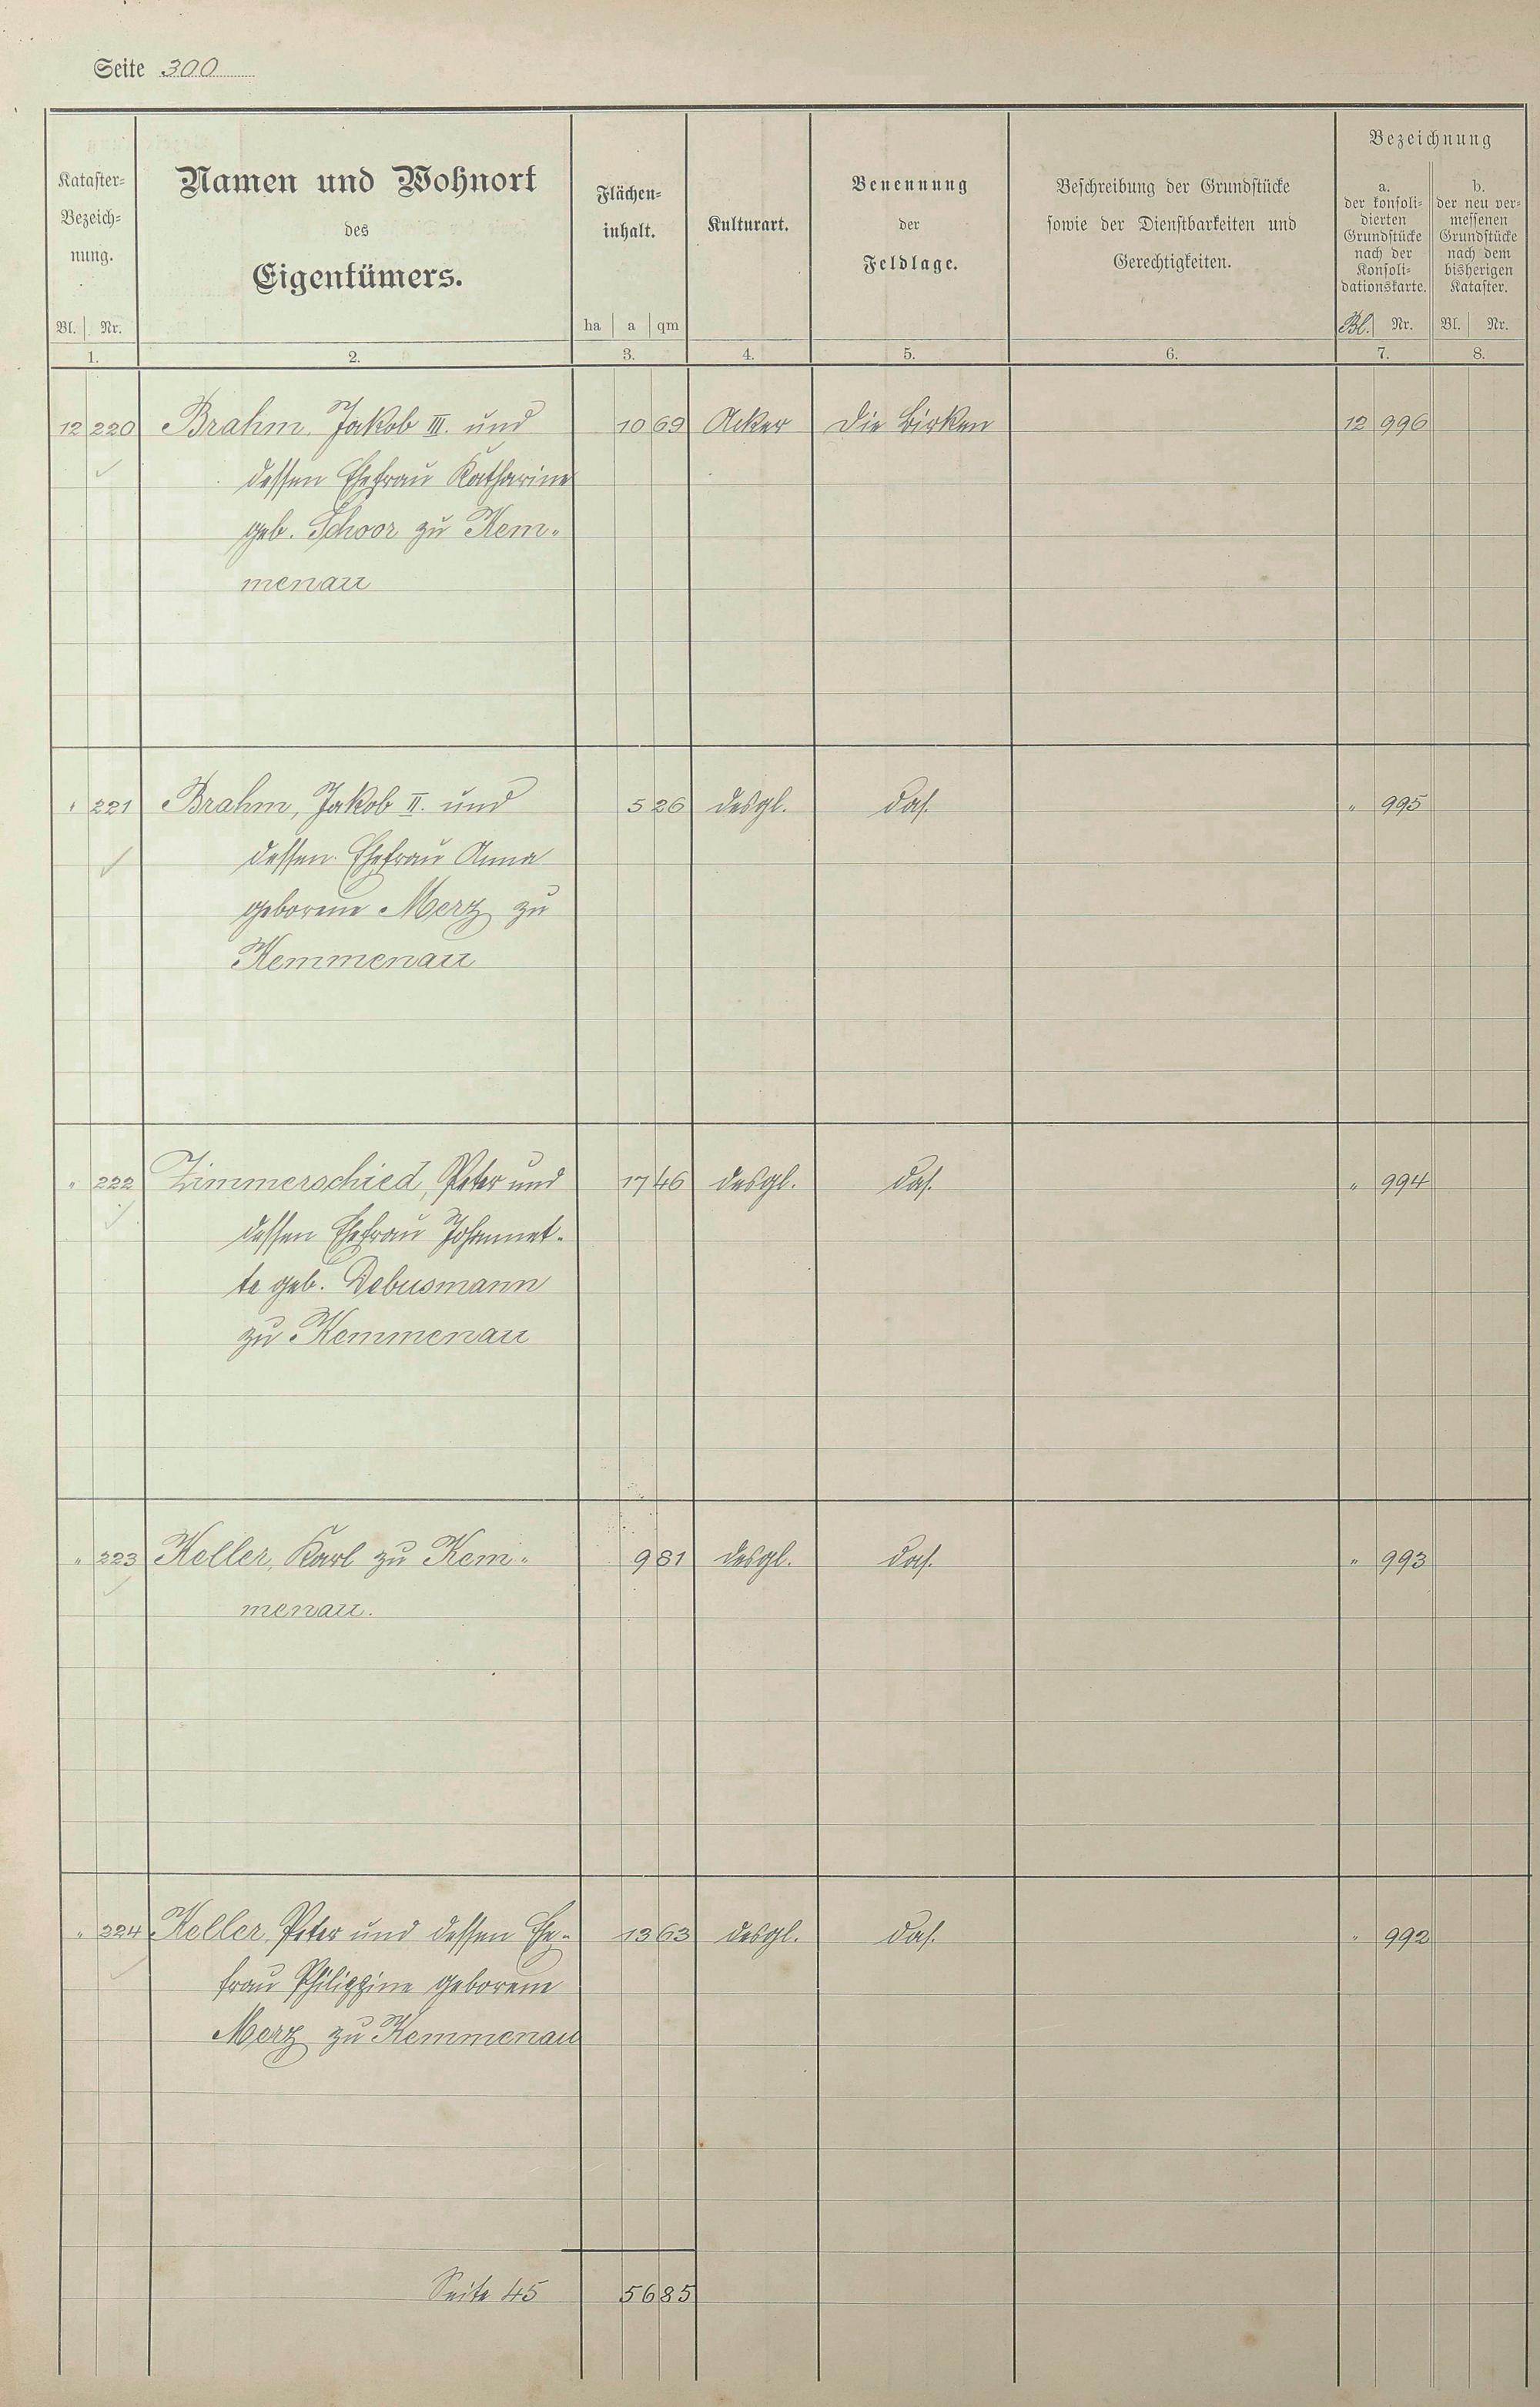 Seite 300
Kataster-
Bezeich-
nung.
Bl. Nr.
1.
Namen und Wohnort
des
Eigentümers.
2.
Flächen-
inhalt.
ha a qm
3.
Kulturart.
4.
Benennung
der
Feldlage.
5.
Beschreibung der Grundstücke
sowie der Dienstbarkeiten und
Gerechtigkeiten.
6.
Bezeichnung
a.
der konsoli-
dierten
Grundstücke
nach der
Konsoli-
dationskarte.
Bl. Nr.
7.
b.
der neu ver-
messenen
Grundstücke
nach dem
bisherigen
Kataster.
Bl. Nr.
8.
12 220 Brahm, Jakob III. und 10 69 Acker Die Birken 12 996
dessen Ehefrau Katharine
geb. Schoor zu Kem-
menau
" 221 Brahm, Jakob II. und 5 26 desgl. das. " 995
dessen Ehefrau Anna
geborene Merz zu
Kemmenau
" 222 Zimmerschied, Peter und 17 46 desgl. das. " 994
dessen Ehefrau Johannet-
te geb. Debusmann
zu Kemmenau
" 223 Keller, Karl zu Kem- 9 81 desgl. das. " 993
menau.
" 224 Keller, Peter und dessen Ehe- 13 63 desgl. das. " 992
frau Philippine geborene
Merz zu Kemmenau
Seite 45 56 85